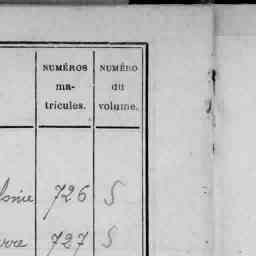 NUMÉROS ma-tricules. NUMÉRO du volume.
726 5
727 5